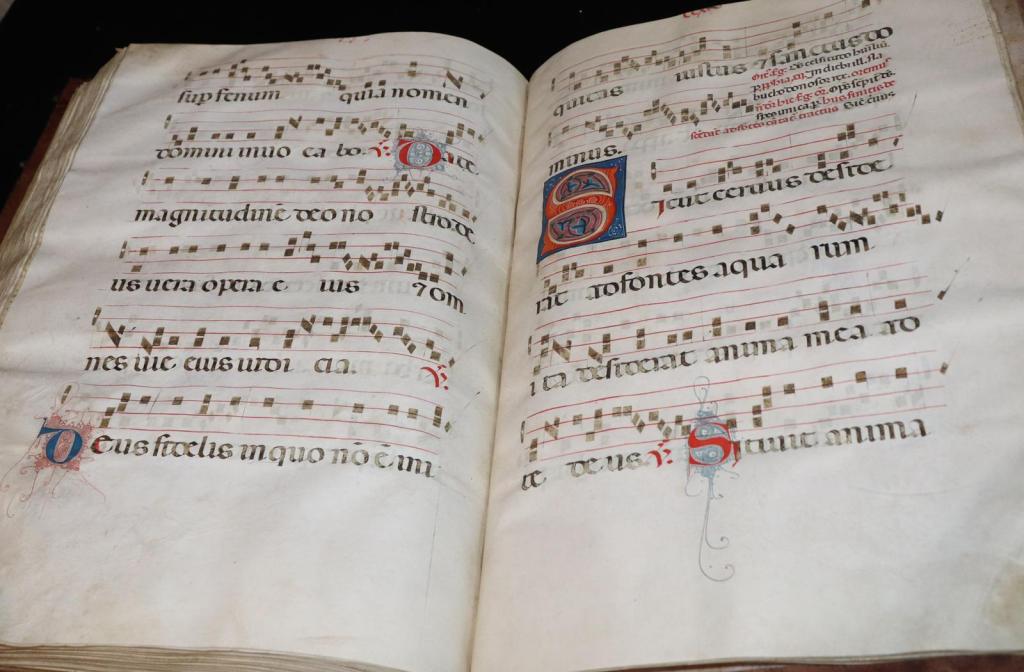 sup fenum quia nomen
domini inuo ca bo. ℣. Date
magnitudinē deo no stro. de
us uera opera e ius ⁊ om
nes uie eius iudi cia. ℣.
Deus fidelis in quo nō ē ini
quitas iustus ⁊ sanctus do
minus.
Sicut ceruus deside
rat ad fontes aqua rum
i ta desiderat anima mea ad
te deus ℣. Sitiuit anima